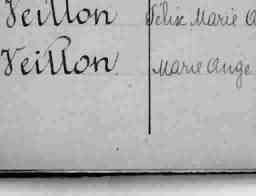 Veillon Félix Marie A
Veillon Marie Ange